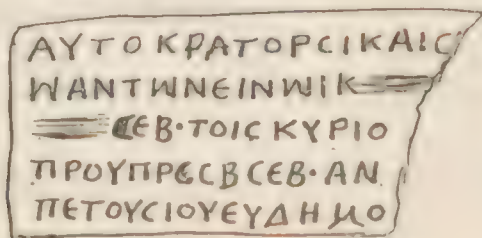 ΑΥΤΟΚΡΑΤΟΡϹΙΚΑΙϹ
ѠΑΝΤѠΝΕΙΝѠΙΚ
ϹΕΒ·ΤΟΙϹΚΥΡΙΟ
ΠΡΟΥΠΡΕϹΒϹΕΒ·ΑΝ
ΠΕΤΟΥϹΙΟΥΕΥΔΗΜΟ